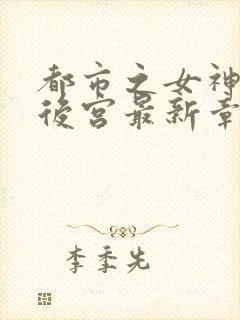 都市之女神
後宫最新章
李季先